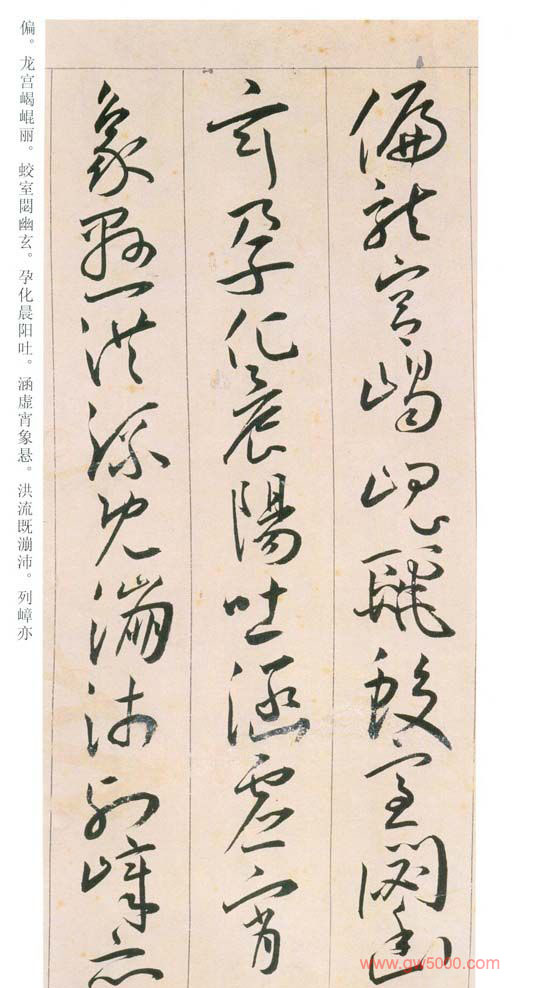 偏龍宮嵑崐麗蛟室閟幽
玄孕化晨陽吐涵虛宵
象懸洪流既漰沛列嶂亦
偏。龙宫嵑崐丽。蛟室閟幽玄。孕化晨阳吐。涵虚宵象悬。洪流既漰沛。列嶂亦
www.gw5000.com